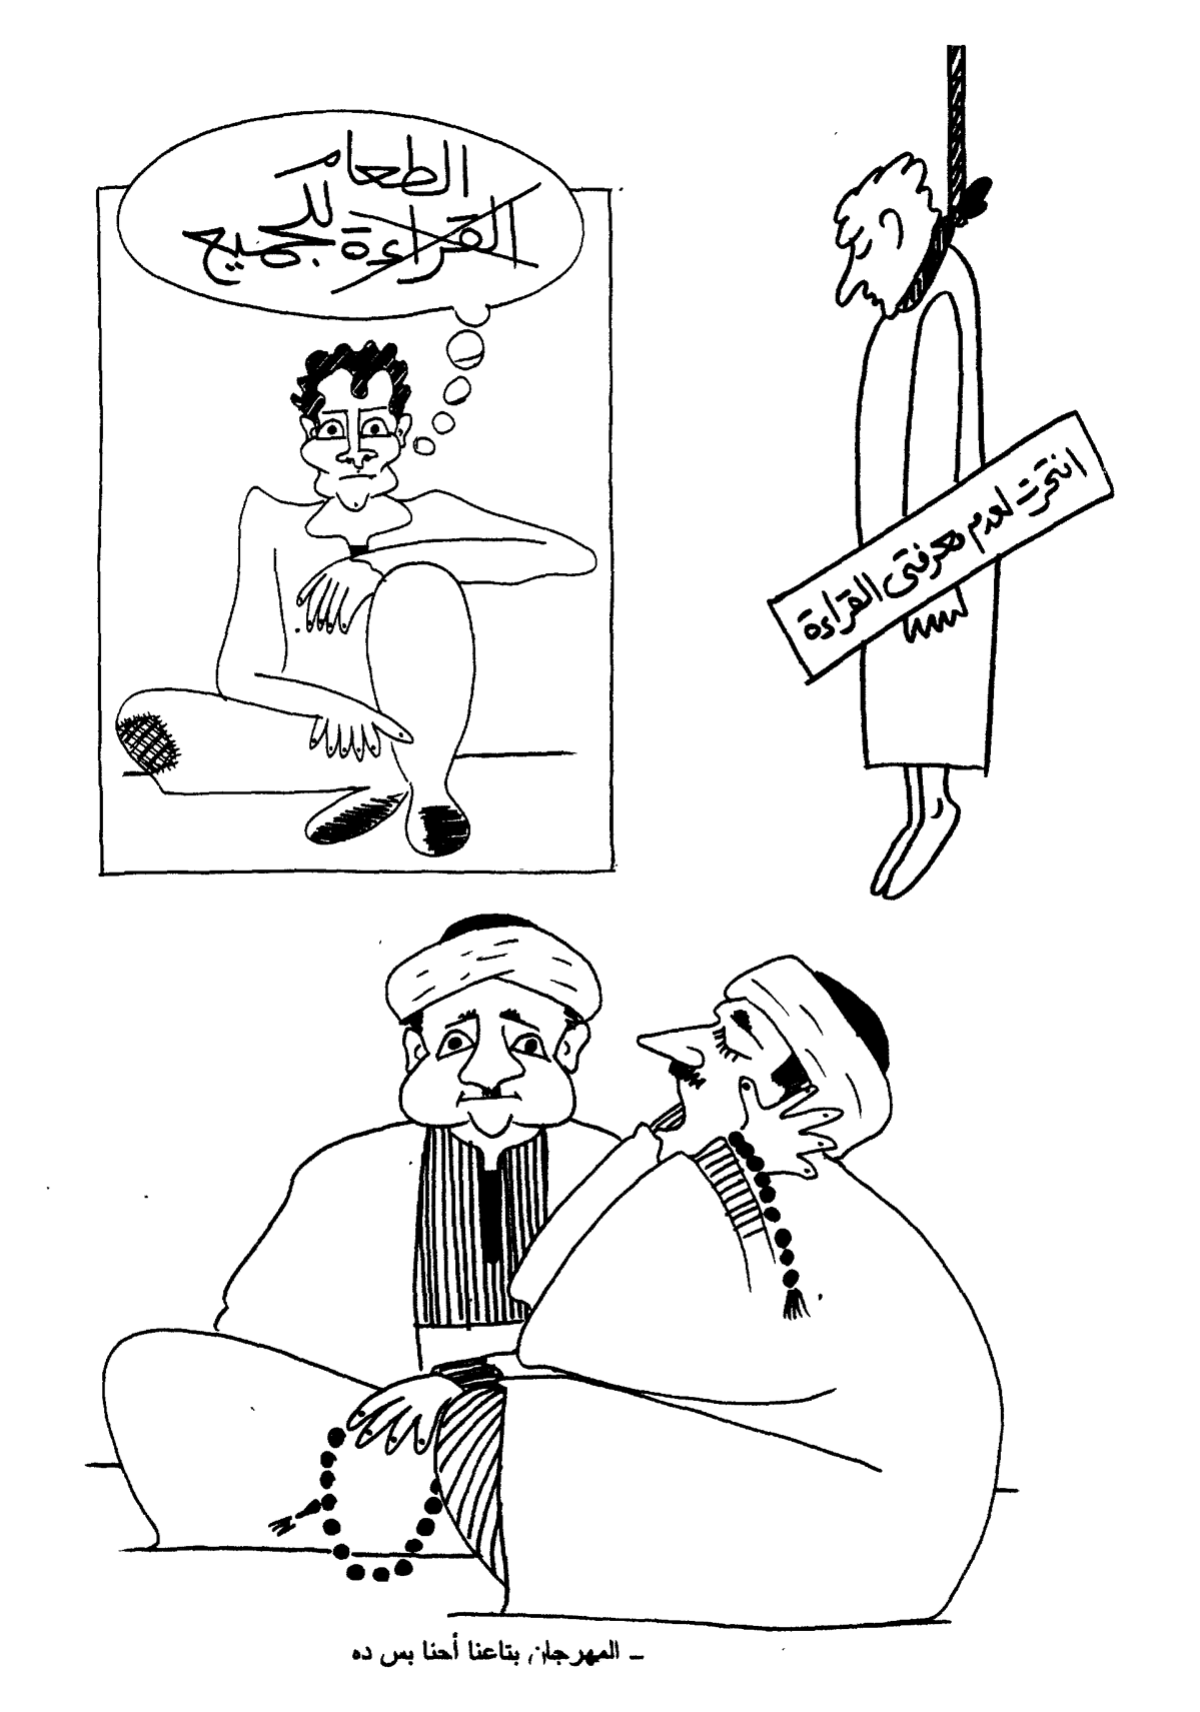 الطعام
القراءة للجميع
انتحرت لعدم معرفتى القراءة
ـ المهرجان بتاعنا أحنا بس ده